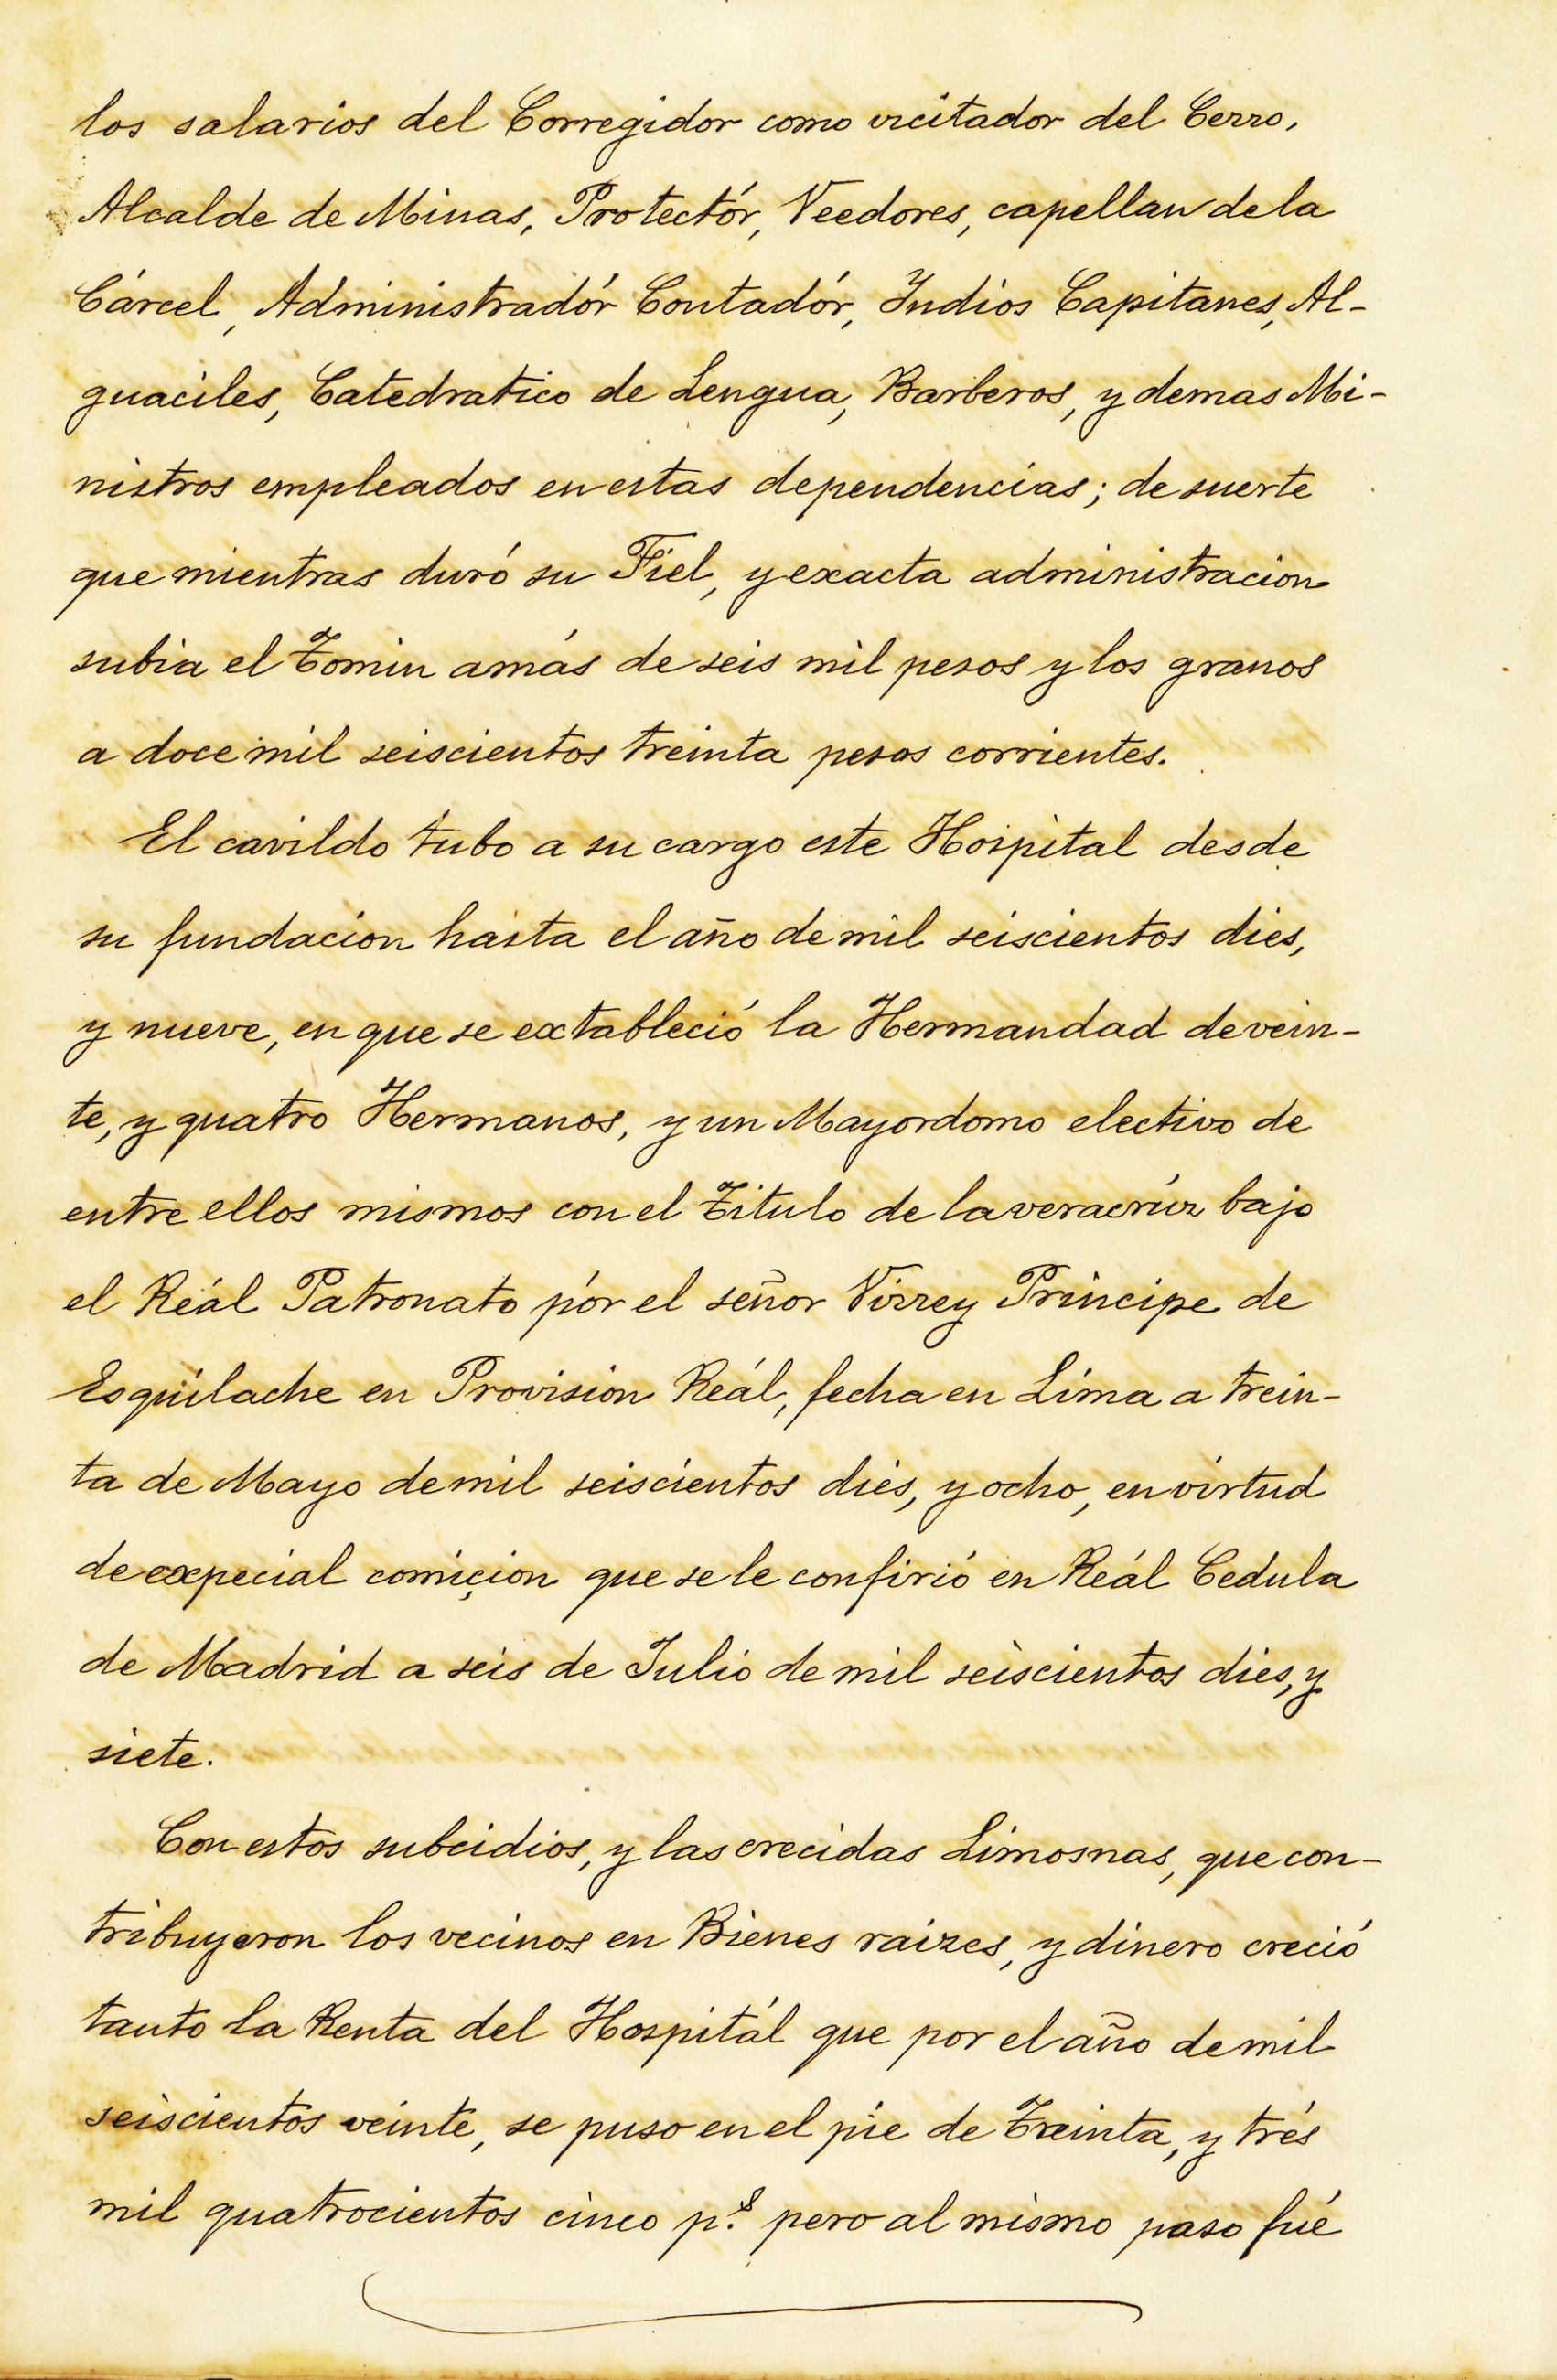 los salarios del Corregidor como vicitador del Cerro,
Alcalde de Minas, Protectór, Veedores, capellan dela
Cárcel, Administradór Contadór, Indios Capitanes, Al-
guaciles, Catedratico de Lengua, Barberos, y demas Mi-
nistros empleados en estas dependencias; de suerte
que mientras duró su Fiel, y exacta administracion
subia el Tomin amás de seis mil pesos y los granos
a doce mil seiscientos treinta pesos corrientes.
El cavildo tubo a su cargo este Hospital desde
su fundacion hasta el año de mil seiscientos dies,
y nueve, en que se extableció la Hermandad de vein-
te, y quatro Hermanos, y un Mayordomo electivo de
entre ellos mismos con el Titulo de la veracrúz bajo
el Reál Patronato pór el señor Virrey Principe de
Esquilache en Provision Reál, fecha en Lima a trein-
ta de Mayo de mil seiscientos dies, y ocho, en virtud
de expecial comiçion que se le confirió en Reál Cedula
de Madrid a seis de Julio de mil seiscientos dies, y
siete.
Con estos subcidios, y las crecidas Limosnas, que con-
tribuyeron los vecinos en Bienes raizes, y dinero creció
tanto la Renta del Hospitál que por el año de mil
seiscientos veinte, se puso en el pie de Treinta, y trés
mil quatrocientos cinco p.s pero al mismo paso fué